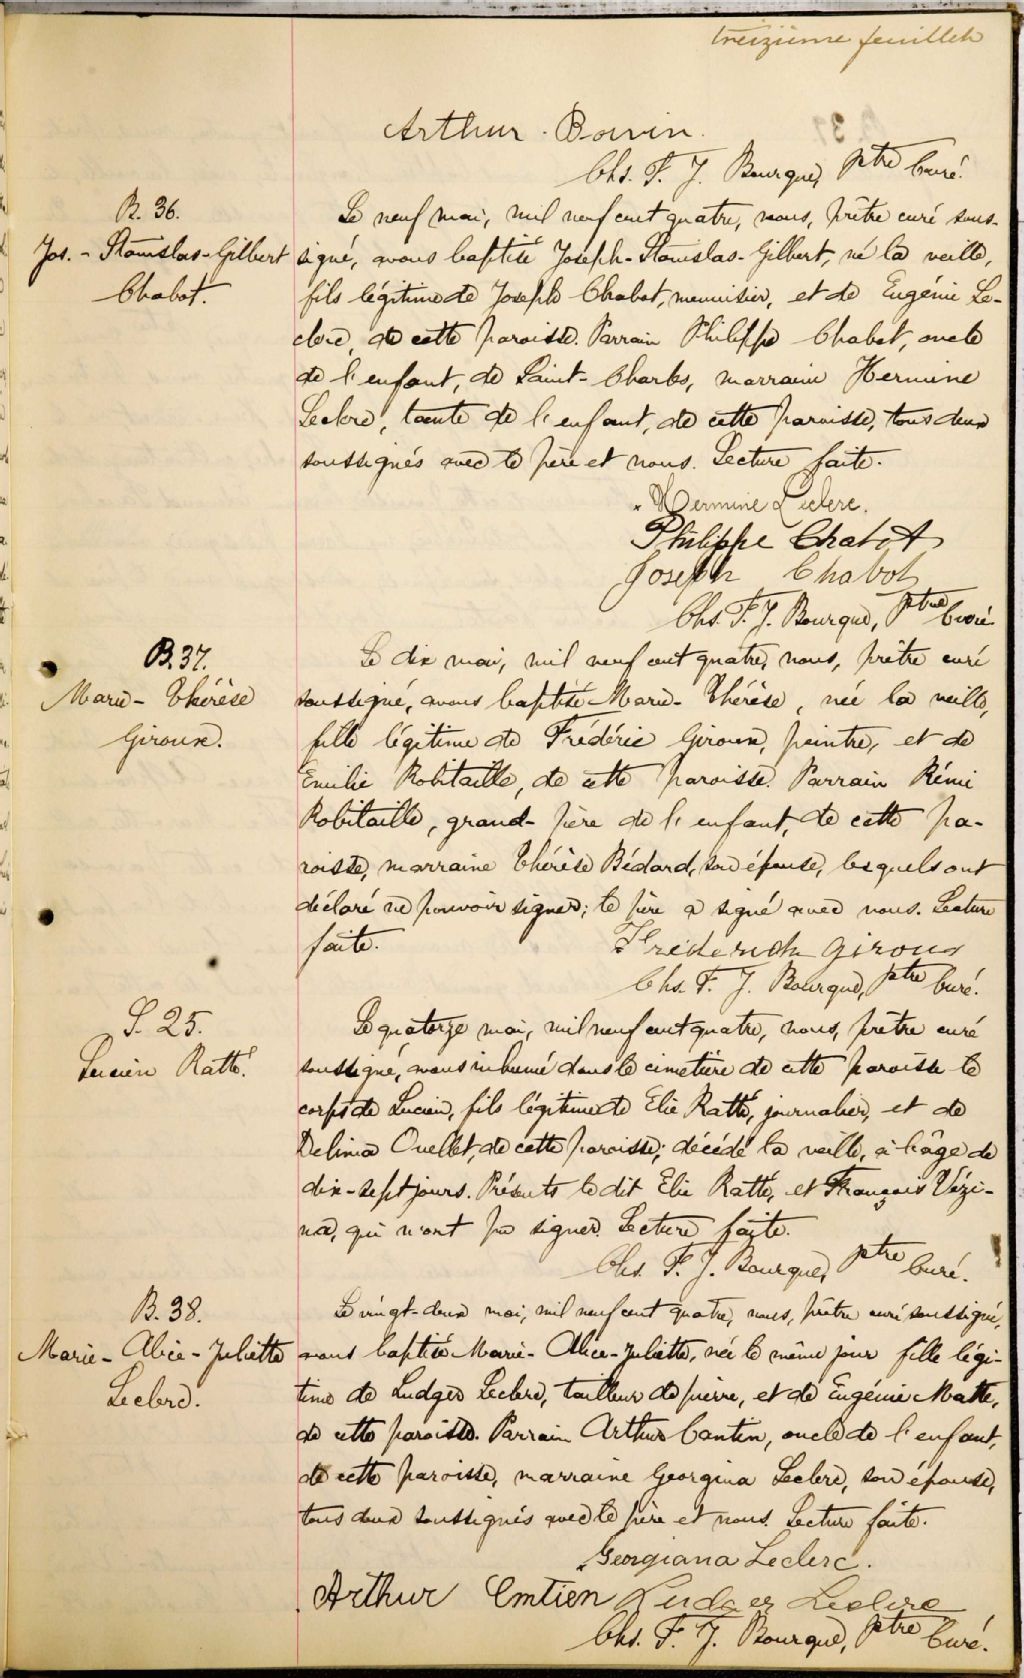 treizième feuillet
Arthur Boivin.
Chs. F. J. Bourque, ptre Curé.
B. 36.
Jos. - Stanislas-Gilbert
Chabot.
Le neuf mai, mil neuf cent quatre, nous, prêtre curé sous-
signé, avons baptisé Joseph-Stanislas-Gilbert, né la veille,
fils légitime de Joseph Chabot, menuisier, et de Eugénie Le-
clerc, de cette paroisse. Parrain Philippe Chabot, oncle
de l'enfant, de Saint-Charles, marraine Hermine
Leclerc, tante de l'enfant, de cette paroisse, tous deux
soussignés avec le père et nous. Lecture faite.
Hermine Leclerc.
Philippe Chabot
Joseph Chabot
Chs. F. J. Bourque, ptre Curé.
B. 37.
Marie-Thérèse
Giroux.
Le dix mai, mil neuf cent quatre, nous, prêtre curé
soussigné, avons baptisé Marie-Thérèse, née la veille,
fille légitime de Frédéric Giroux, peintre, et de
Emilie Robitaille, de cette paroisse. Parrain Rémi
Robitaille, grand-père de l'enfant, de cette pa-
roisse, marraine Thérèse Bédard, son épouse, lesquels ont
déclaré ne pouvoir signer; le père a signé avec nous. Lecture
faite.
Frederick Giroux
Chs. F. J. Bourque, ptre Curé.
S. 25.
Lucien Ratté.
Le quatorze mai, mil neuf cent quatre, nous, prêtre curé
soussigné, avons inhumé dans le cimetière de cette paroisse le
corps de Lucien, fils légitime de Elie Ratté, journalier, et de
Delima Ouellet, de cette paroisse; décédé la veille, à l'âge de
dix-sept jours. Présents le dit Elie Ratté, et François Vézi-
na, qui n'ont pu signer. Lecture faite.
Chs. F. J. Bourque, ptre Curé.
B. 38.
Marie-Alice-Juliette
Leclerc.
Le vingt-deux mai, mil neuf cent quatre, nous, prêtre curé soussigné,
avons baptisé Marie-Alice-Juliette, née le même jour fille légi-
time de Ludger Leclerc, tailleur de pierre, et de Eugénie Matte,
de cette paroisse. Parrain Arthur Cantin, oncle de l'enfant,
de cette paroisse, marraine Georgina Leclerc, son épouse,
tous deux soussignés avec le père et nous. Lecture faite.
Georgiana Leclerc.
Arthur Emtien Ludger Leclerc
Chs. F. J. Bourque, ptre Curé.